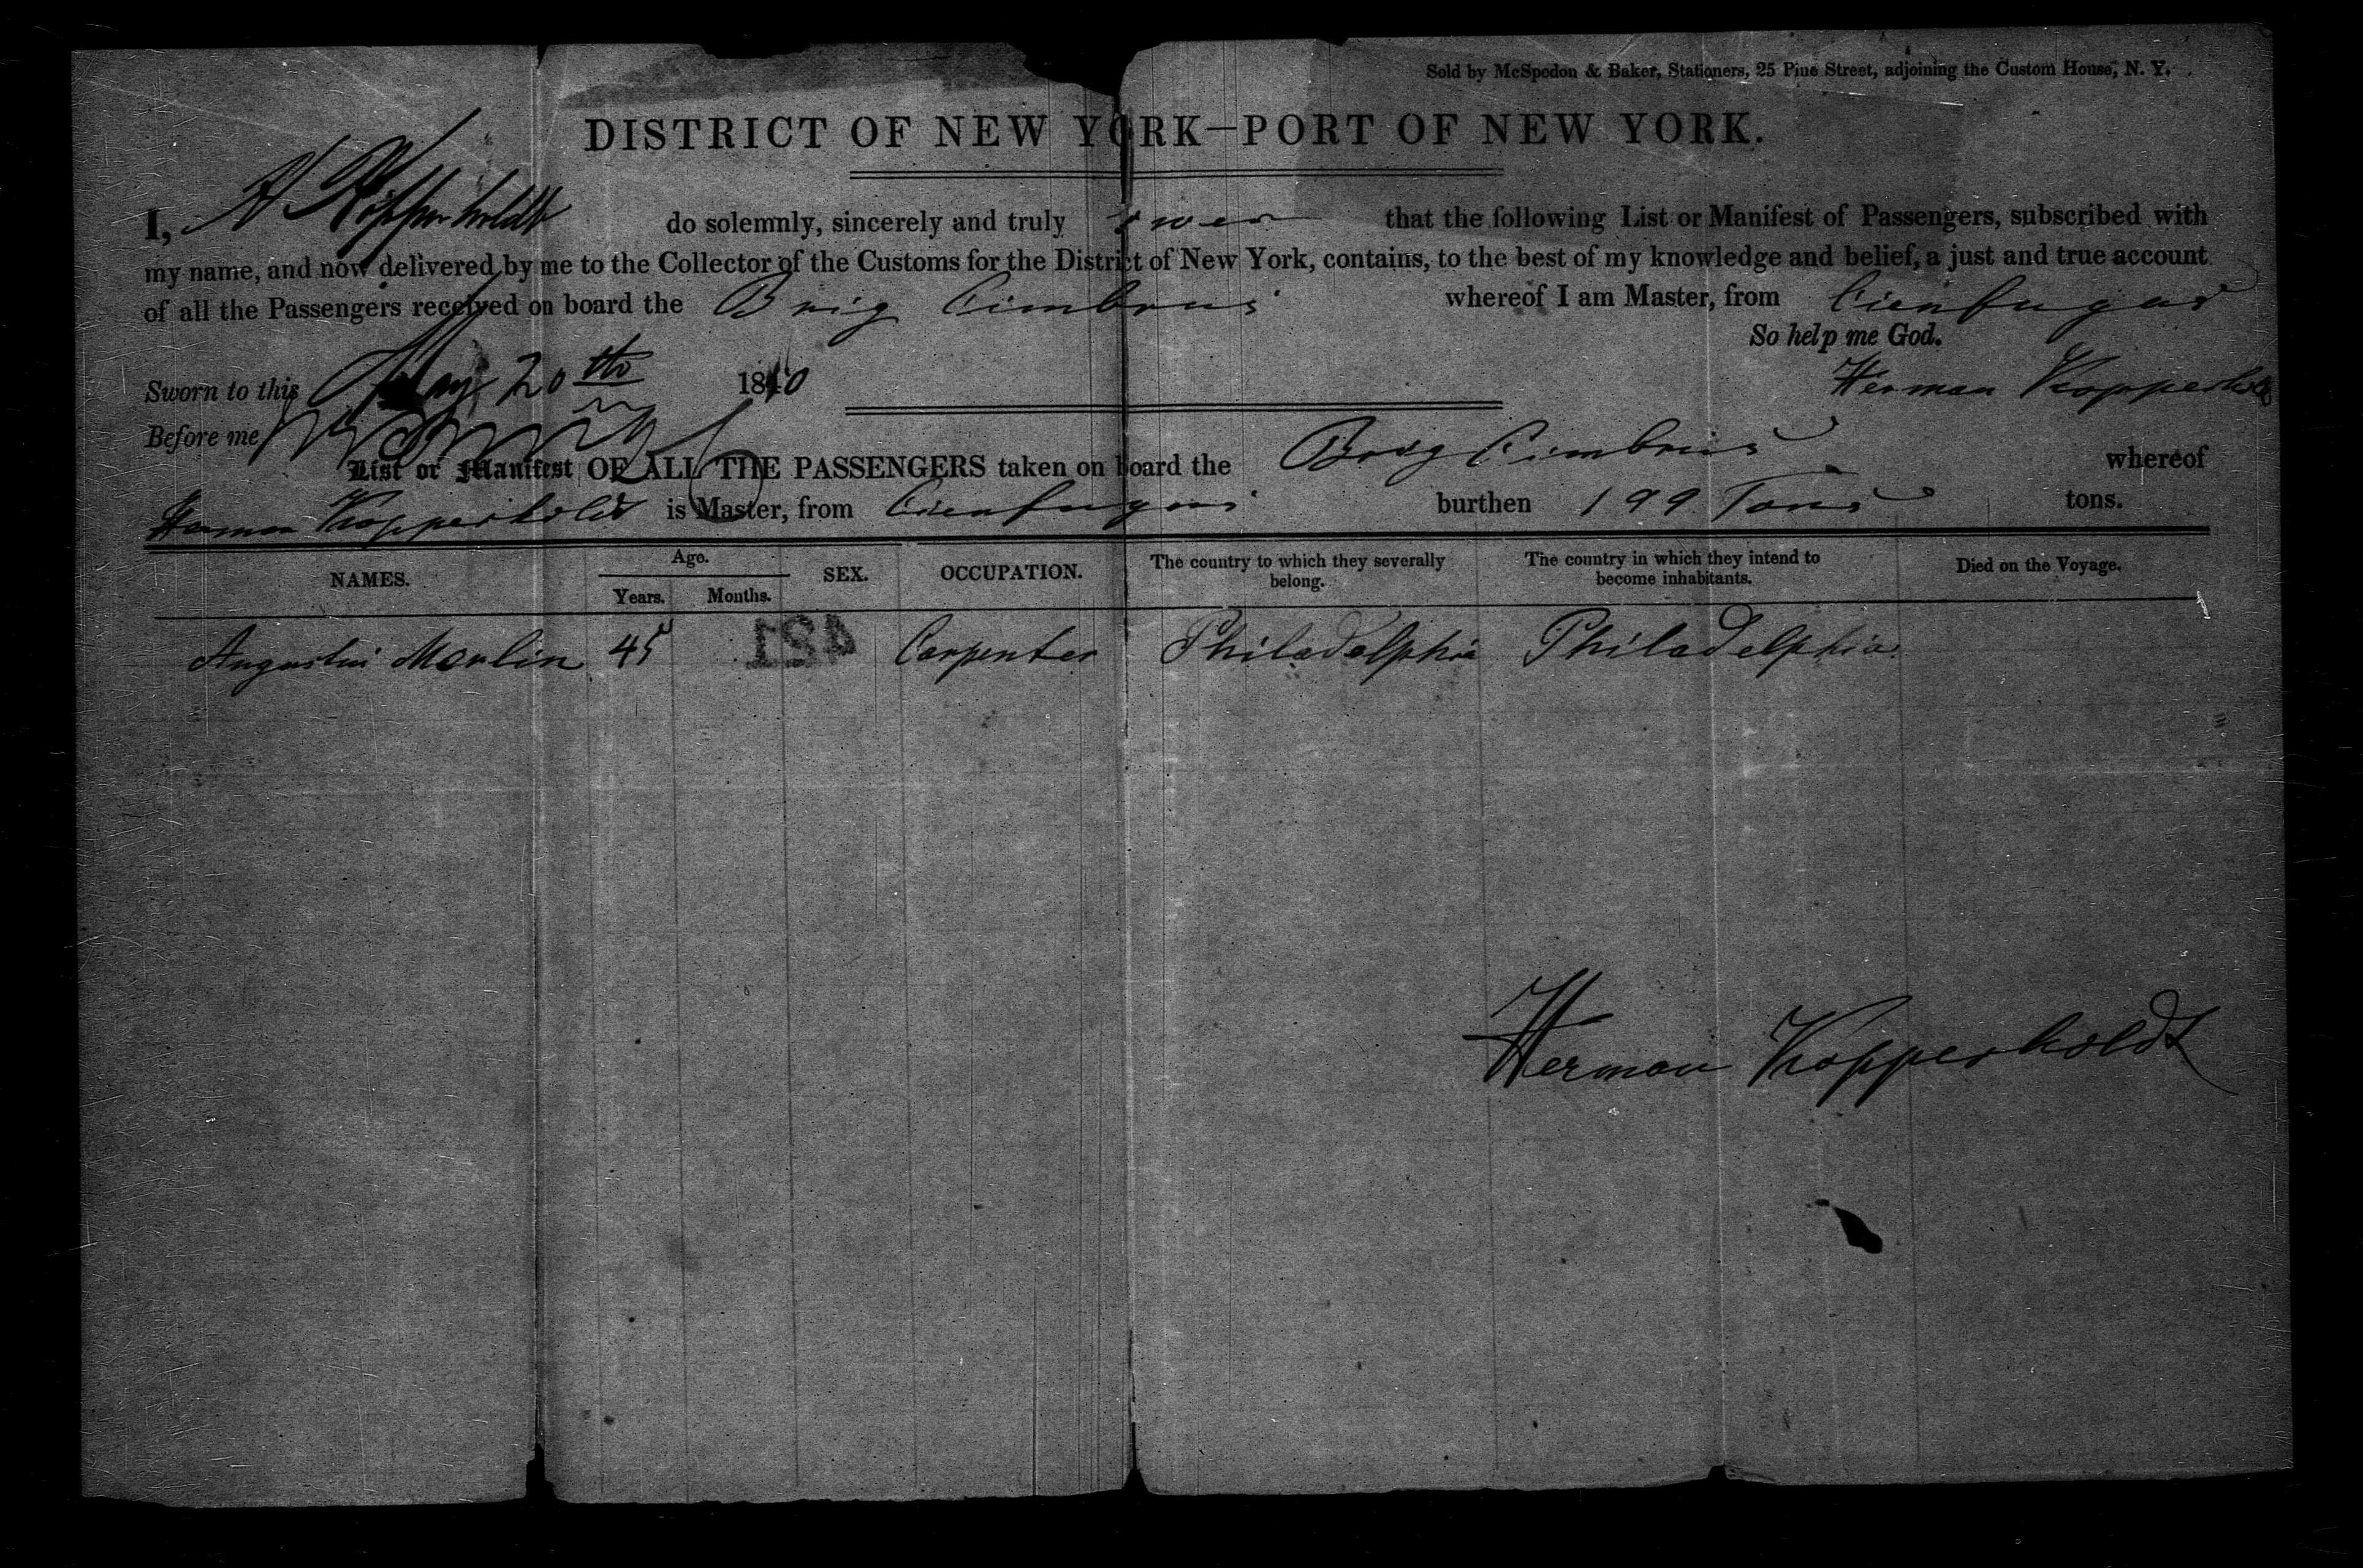 Sold by McSpedon & Baker, Stationers, 25 Pine Street, adjoining the Custom House, N. Y.
DISTRICT OF NEW YORK—PORT OF NEW YORK.
I, H Kopperholdt do solemnly, sincerely and truly swear that the following List or Manifest of Passengers, subscribed with
my name, and now delivered by me to the Collector of the Customs for the District of New York, contains, to the best of my knowledge and belief, a just and true account
of all the Passengers received on board the Brig Cimbrus whereof I am Master, from Cienfugos
So help me God.
Sworn to this May 20th 18 0 Herman Kopperholdt
Before me
List or Manifest OF ALL THE PASSENGERS taken on board the Brig Cimbrus whereof
Herman Kopperholdt is Master, from Cienfugos burthen 199 Tons tons.
NAMES. Age. Years. Months. SEX. OCCUPATION. The country to which they severally belong. The country in which they intend to become inhabitants. Died on the Voyage.
Augustus Marlin 45 Carpenter Philadelphia Philadelphia
421
Herman Kopperholdt